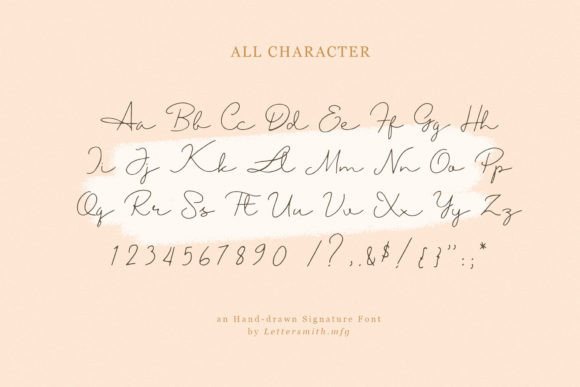 ALL CHARACTER
Aa Bb Cc Dd Ee Ff Gg Hh
Ii Jj Kk Ll Mm Nn Oo Pp
Qq Rr Ss Tt Uu Vv Xx Yy Zz
1234567890 /?,.&$/{}":;*
an Hand-drawn Signature Font
by Lettersmith.mfg